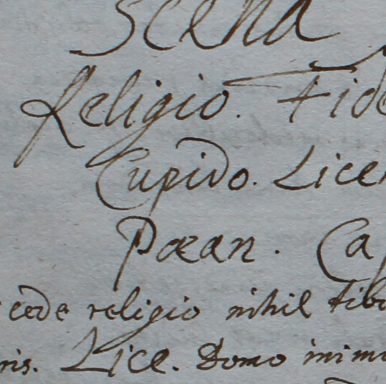 Scena
Religio. Fide
Cupido. Lice
Pæan. Ca
cede religio nihil tibi
ris. Lice. Domo inimi